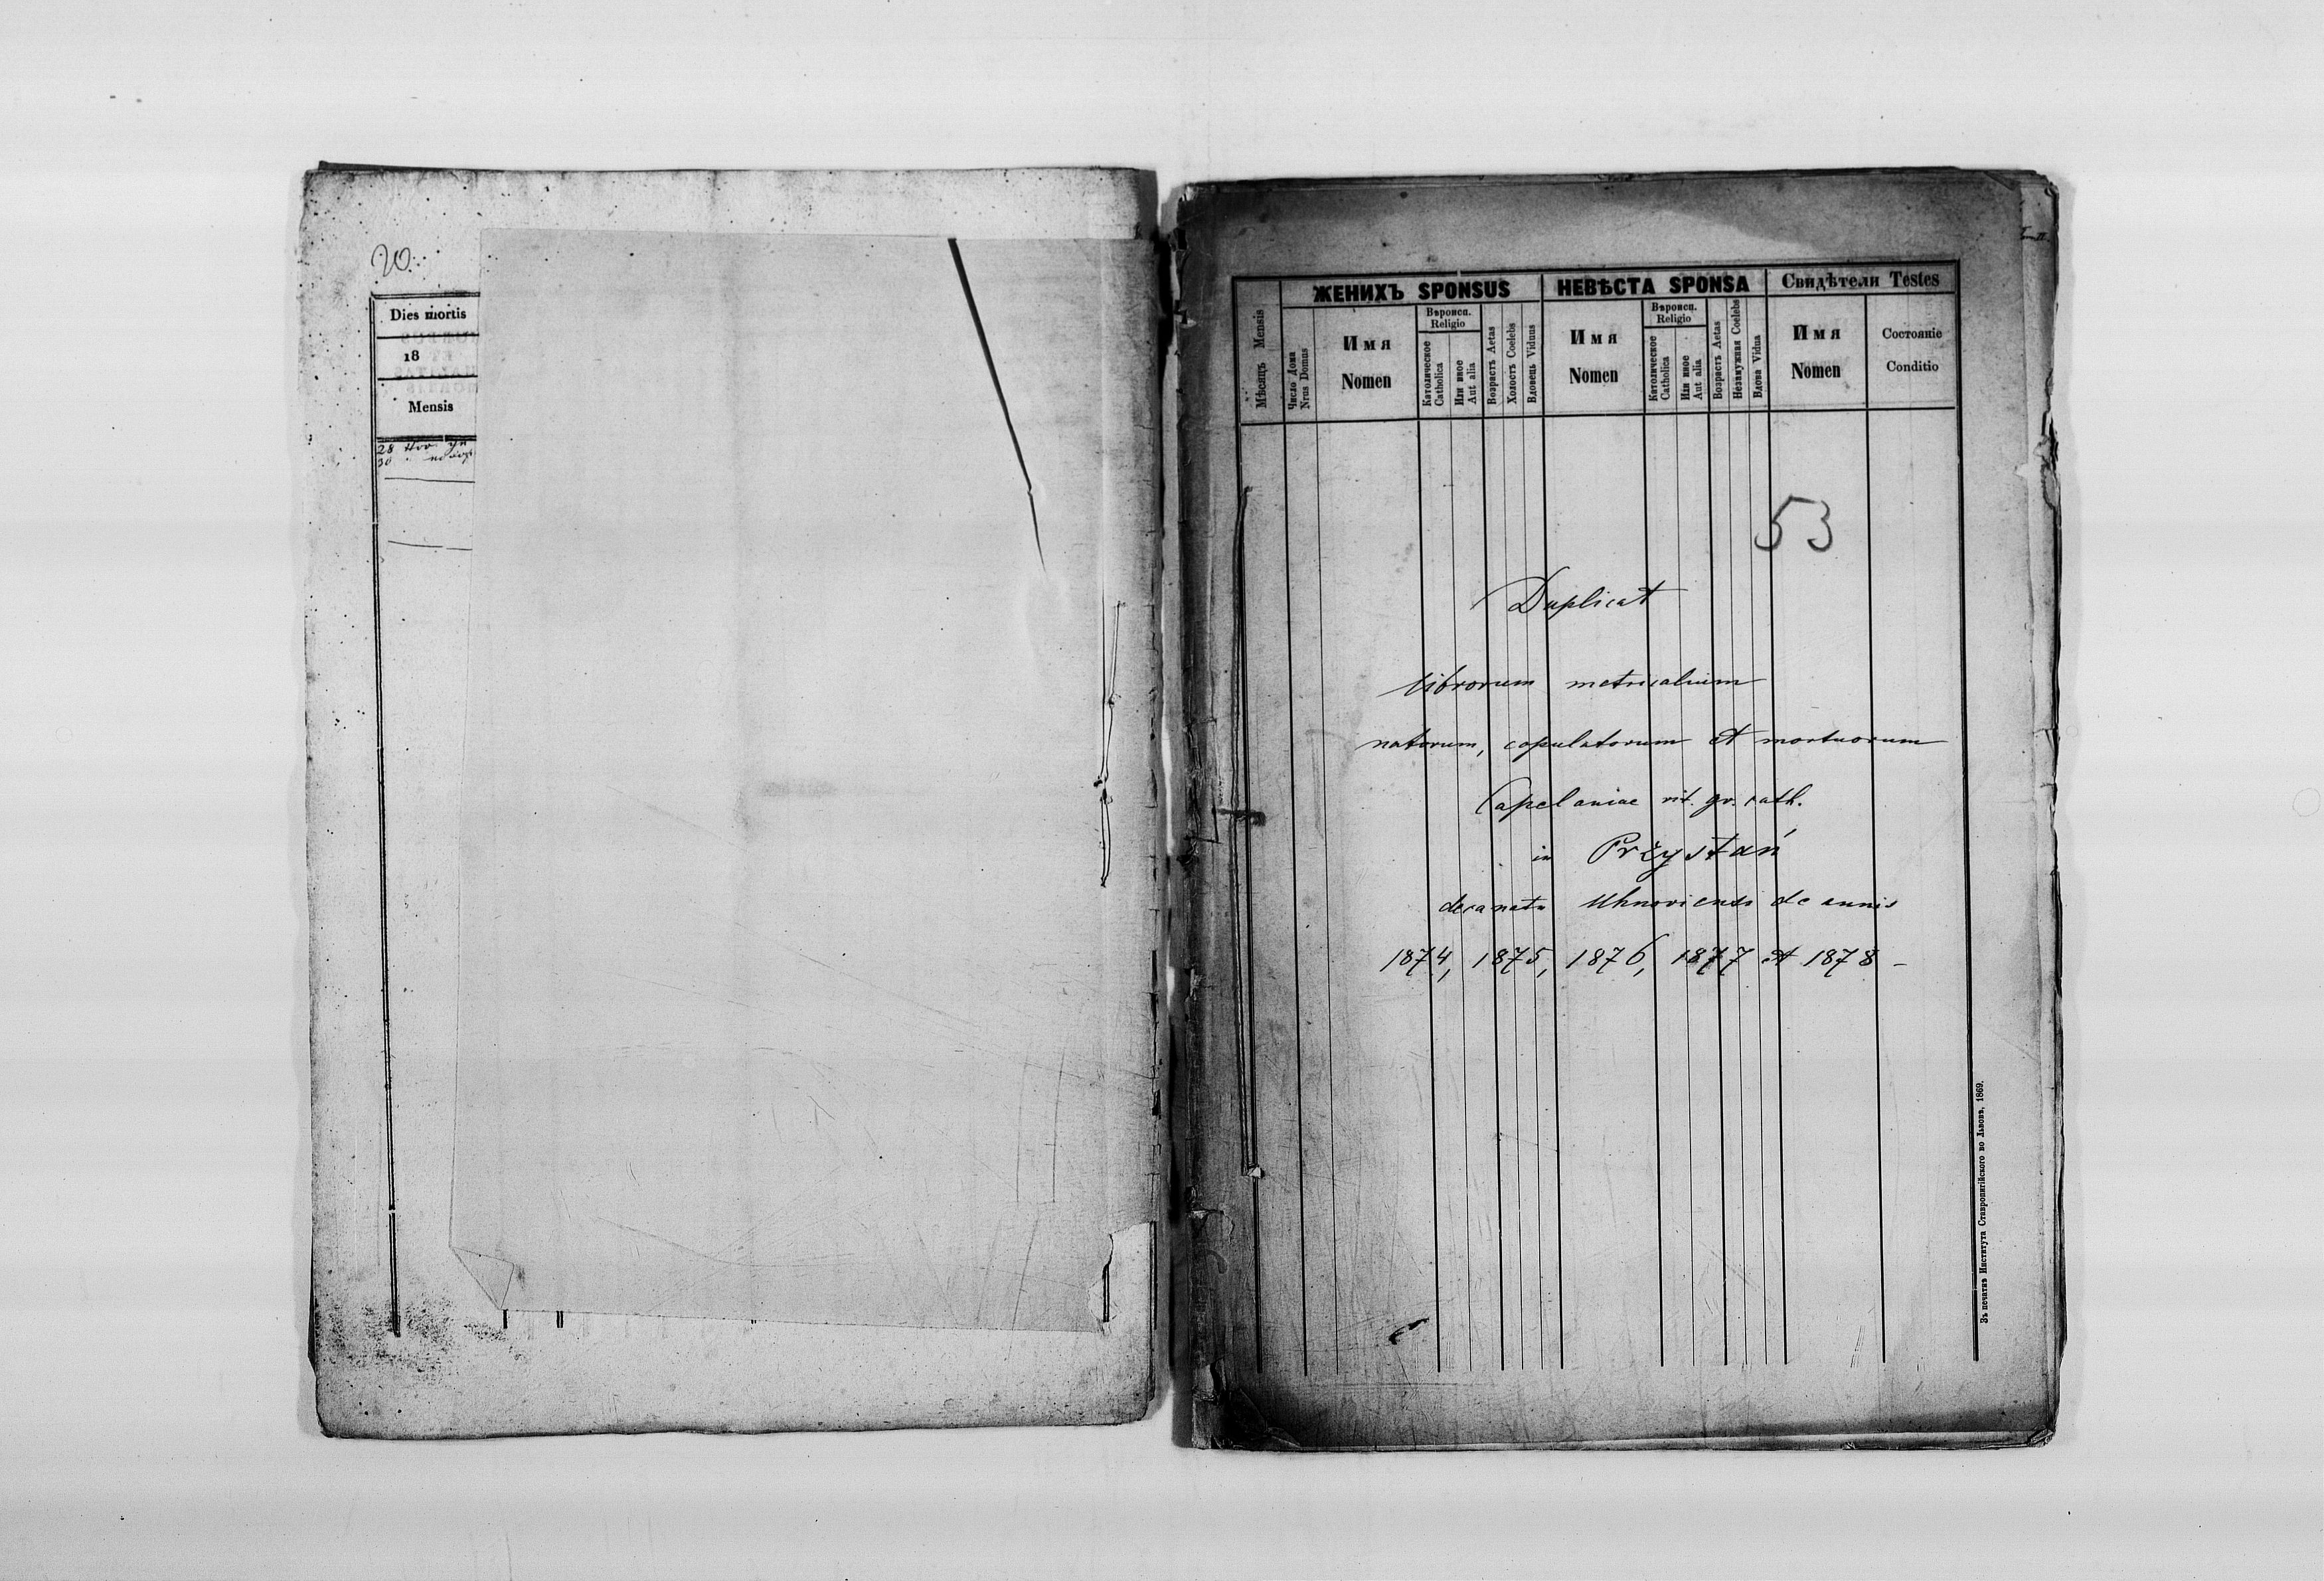 20.
Dies mortis
18
Mensis
28 Nov
30 "
ЖЕНИХЪ SPONSUS
НЕВѢСТА SPONSA
Свидѣтели Testes
Мѣсяцъ Mensis
Число Дома
Nrus Domus
Имя
Nomen
Вѣроисп.
Religio
Католическое
Catholica
Или иное
Aut alia
Возрастъ Aetas
Холостъ Coelebs
Вдовецъ Viduus
Имя
Nomen
Вѣроисп.
Religio
Католическое
Catholica
Или иное
Aut alia
Возрастъ Aetas
Незамужная Coelebs
Вдова Vidua
Имя
Nomen
Состояніе
Conditio
53
Duplicat
librorum metricalium
natorum, copulatorum et mortuorum
Capelaniae rit. gr. cath.
in Przystań
decanatu Uhnoviensi de annis
1874, 1875, 1876, 1877 et 1878 –
Зъ печатнѣ Института Ставропигійского во Львовѣ, 1869.